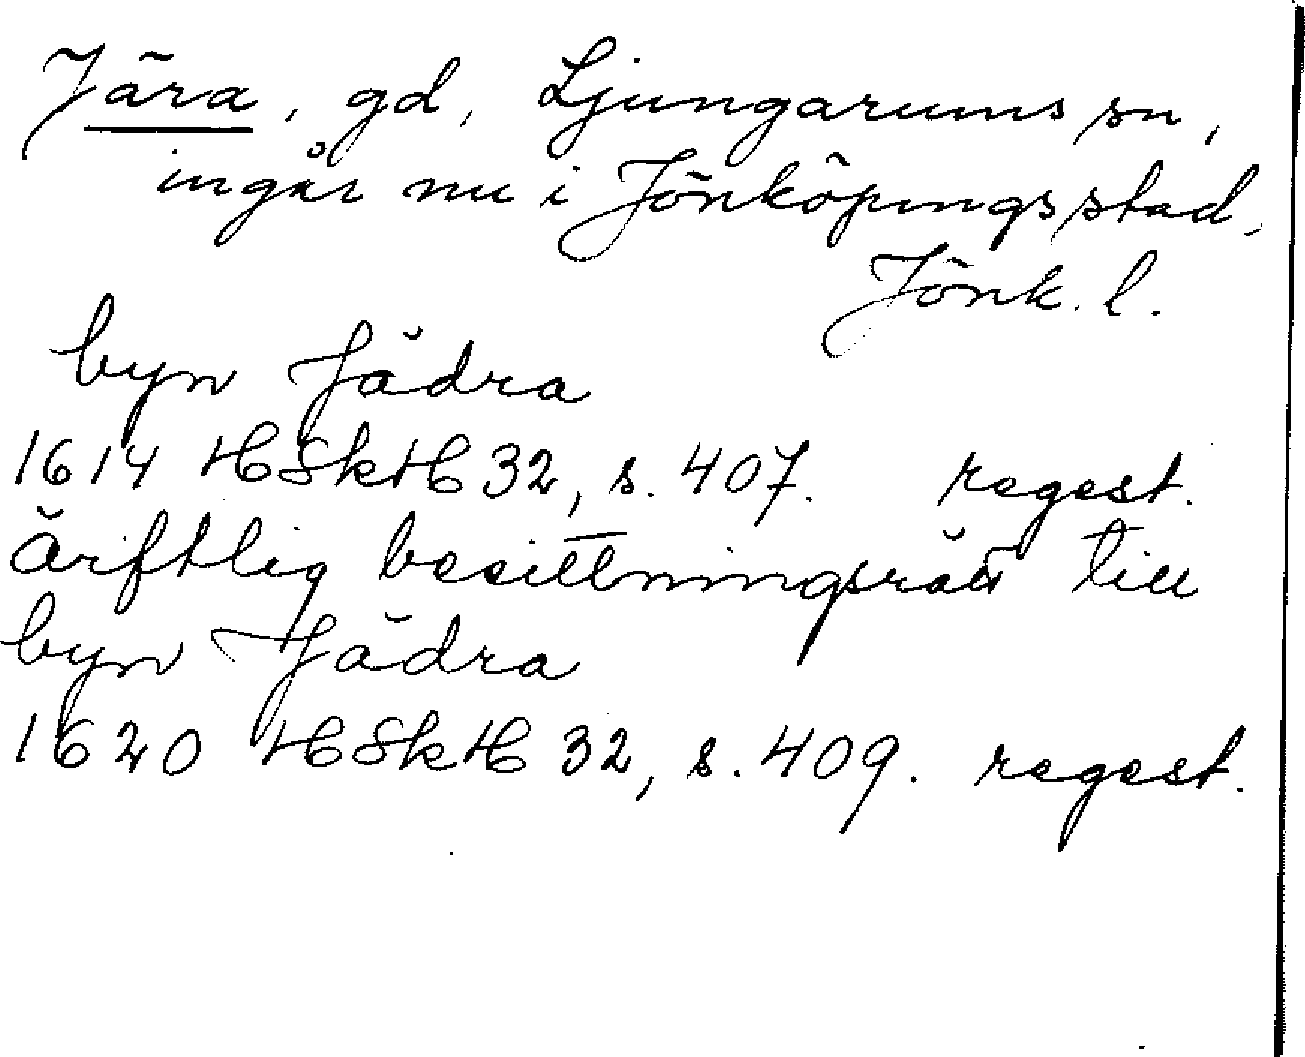 Jära, gd, Ljungarums sn,
ingår nu i Jönköpings stad,
Jönk. l.
byn Jädra
1614 HSkH 32, s. 407. regest.
ärftlig besittningsrätt till
byn Jädra
1620 HSkH 32, s. 409. regest.